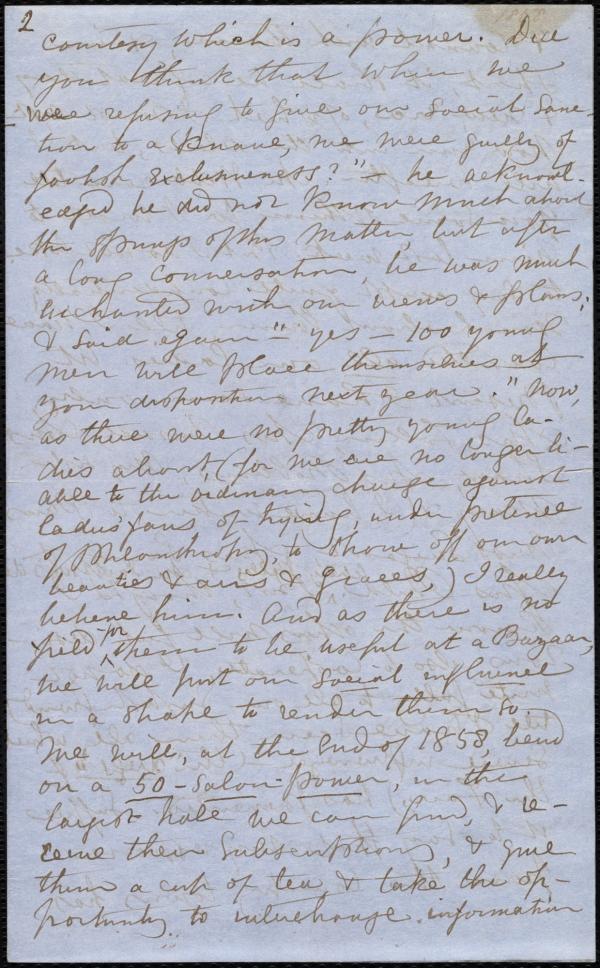 2
courtesy which is a power. Did
you think that when we
were refusing to give our social sanc-
tion to a Knave, we were guilty of
foolish exclusiveness?" — he acknowl-
edged he did not know much about
the springs of this matter, but after
a long conversation, he was much
enchanted with our views & plans;
& said again "yes — 100 young
men will place themselves at
your disposition next year." Now,
as there were no pretty young la-
dies about, (for we are no longer li-
able to the ordinary charge against
ladies' fairs of trying, under pretence
of philanthropy, to show off our own
beauties & airs & graces,) I really
believe him. And as there is no
field for them to be useful at a Bazaar,
we will put our social influence
in a shape to render them so.
We will, at the end of 1858, bend
on a 50-Salon-power, in the
largest hall we can find, & re-
ceive their subscriptions, & give
them a cup of tea & take the op-
portunity to interchange information